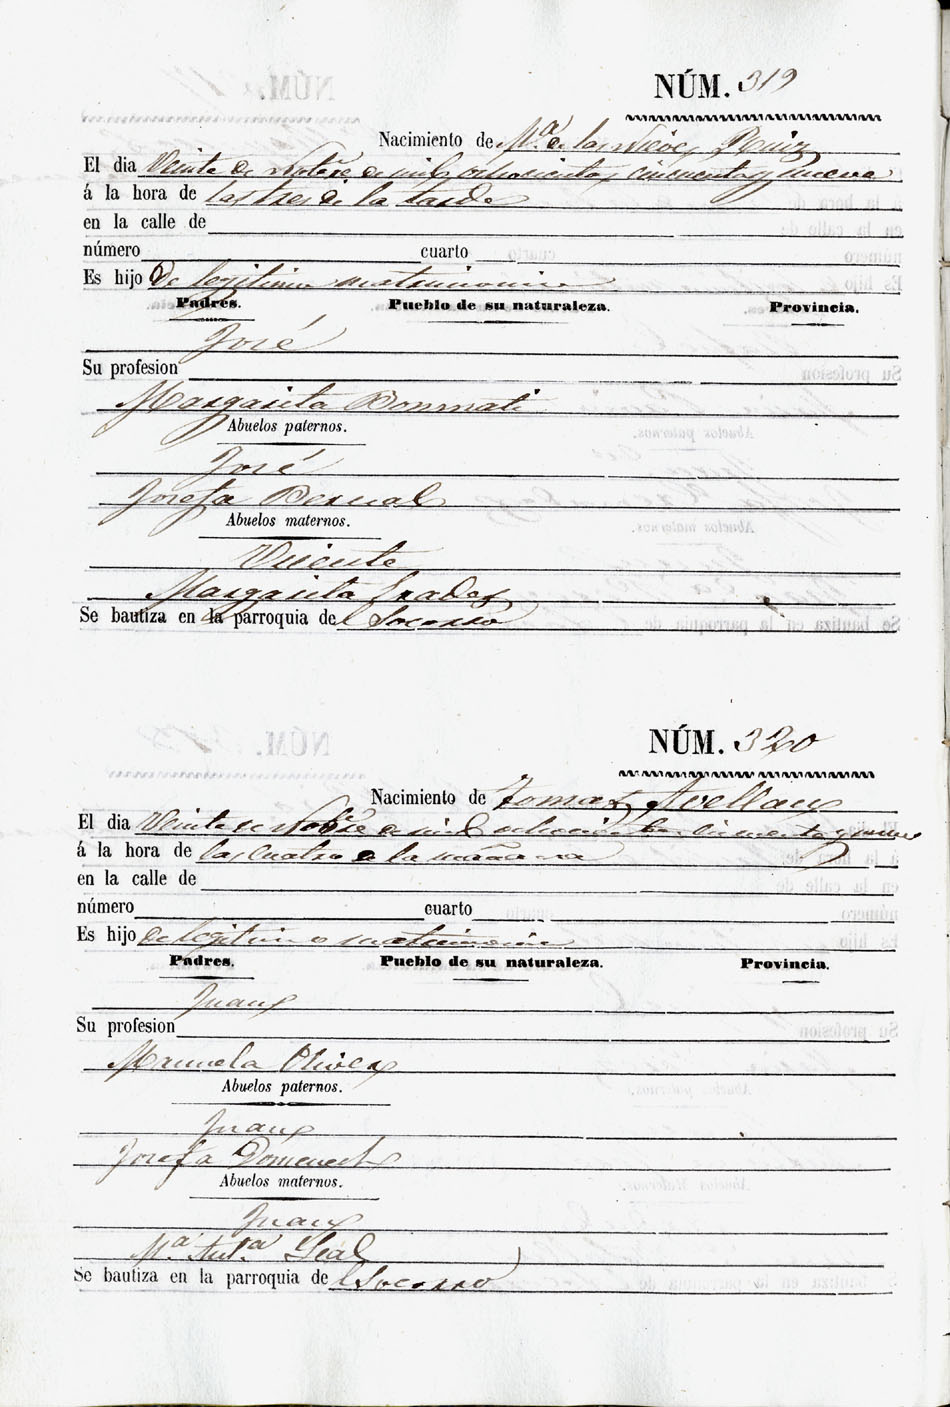 NÚM. 319
Nacimiento de Mª de las Nieves Ruiz
El dia Veinte de Novbre de mil ochocientos cincuenta y nueve
á la hora de las tres de la tarde
en la calle de
número cuarto
Es hijo De legitimo matrimonio
Padres. Pueblo de su naturaleza. Provincia.
José
Su profesion
Margarita Bonmati
Abuelos paternos.
José
Josefa Bernal
Abuelos maternos.
Vicente
Margarita
Se bautiza en la parroquia del Socorro
NÚM. 320
Nacimiento de Tomas Avellan
El dia Veinte de Novbre de mil ochocientos cincuenta y nueve
á la hora de las cuatro de la mañana
en la calle de
número cuarto
Es hijo de legitimo matrimonio
Padres. Pueblo de su naturaleza. Provincia.
Juan
Su profesion
Manuela Oliver
Abuelos paternos.
Juan
Josefa Domenech
Abuelos maternos.
Juan
Mª Antª Leal
Se bautiza en la parroquia del Socorro